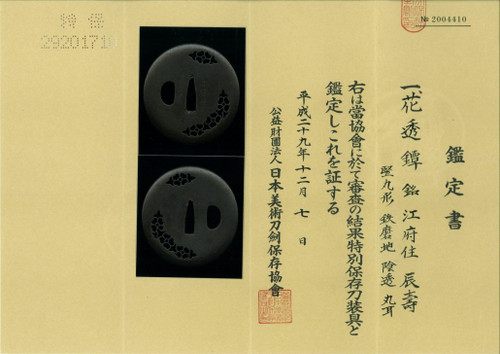 № 2004410
鑑定書
一、花透鐔 銘 江府住 辰壽
竪丸形 鉄磨地 陰透 丸耳
右は當協會に於て審査の結果特別保存刀装具と
鑑定しこれを証する
平成二十九年十二月七日
公益財團法人 日本美術刀剣保存協會
特保